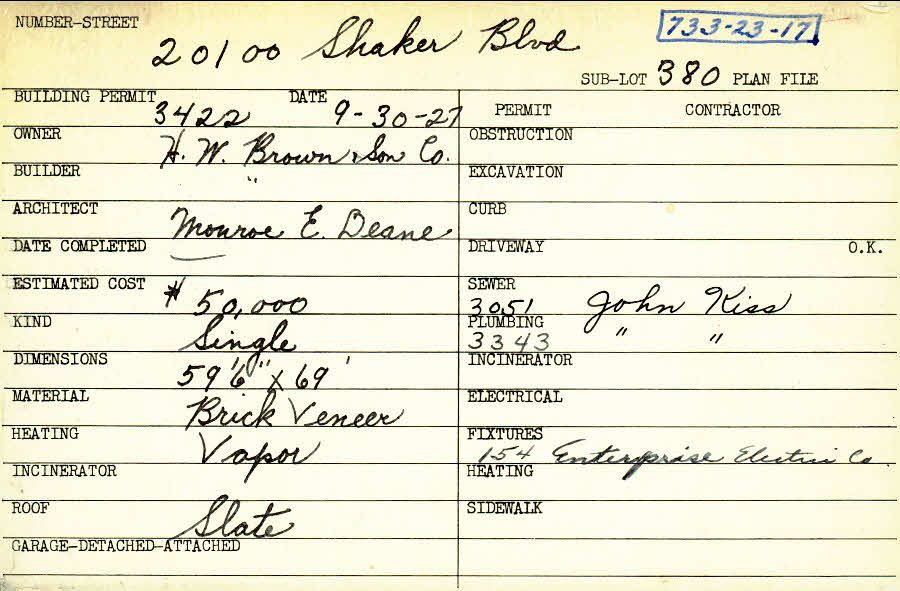 NUMBER-STREET
20100 Shaker Blvd
733-23-17
SUB-LOT 380 PLAN FILE
BUILDING PERMIT 3422 DATE 9-30-27
PERMIT CONTRACTOR
OWNER H. W. Brown & Son Co.
OBSTRUCTION
BUILDER "
EXCAVATION
ARCHITECT Monroe E. Deane
CURB
DATE COMPLETED —
DRIVEWAY O.K.
ESTIMATED COST $ 50,000
SEWER 3051 John Kiss
KIND Single
PLUMBING 3343 " "
DIMENSIONS 59'6" x 69'
INCINERATOR
MATERIAL Brick Veneer
ELECTRICAL
HEATING Vapor
FIXTURES 154 Enterprise Electric Co
INCINERATOR
HEATING
ROOF Slate
SIDEWALK
GARAGE-DETACHED-ATTACHED